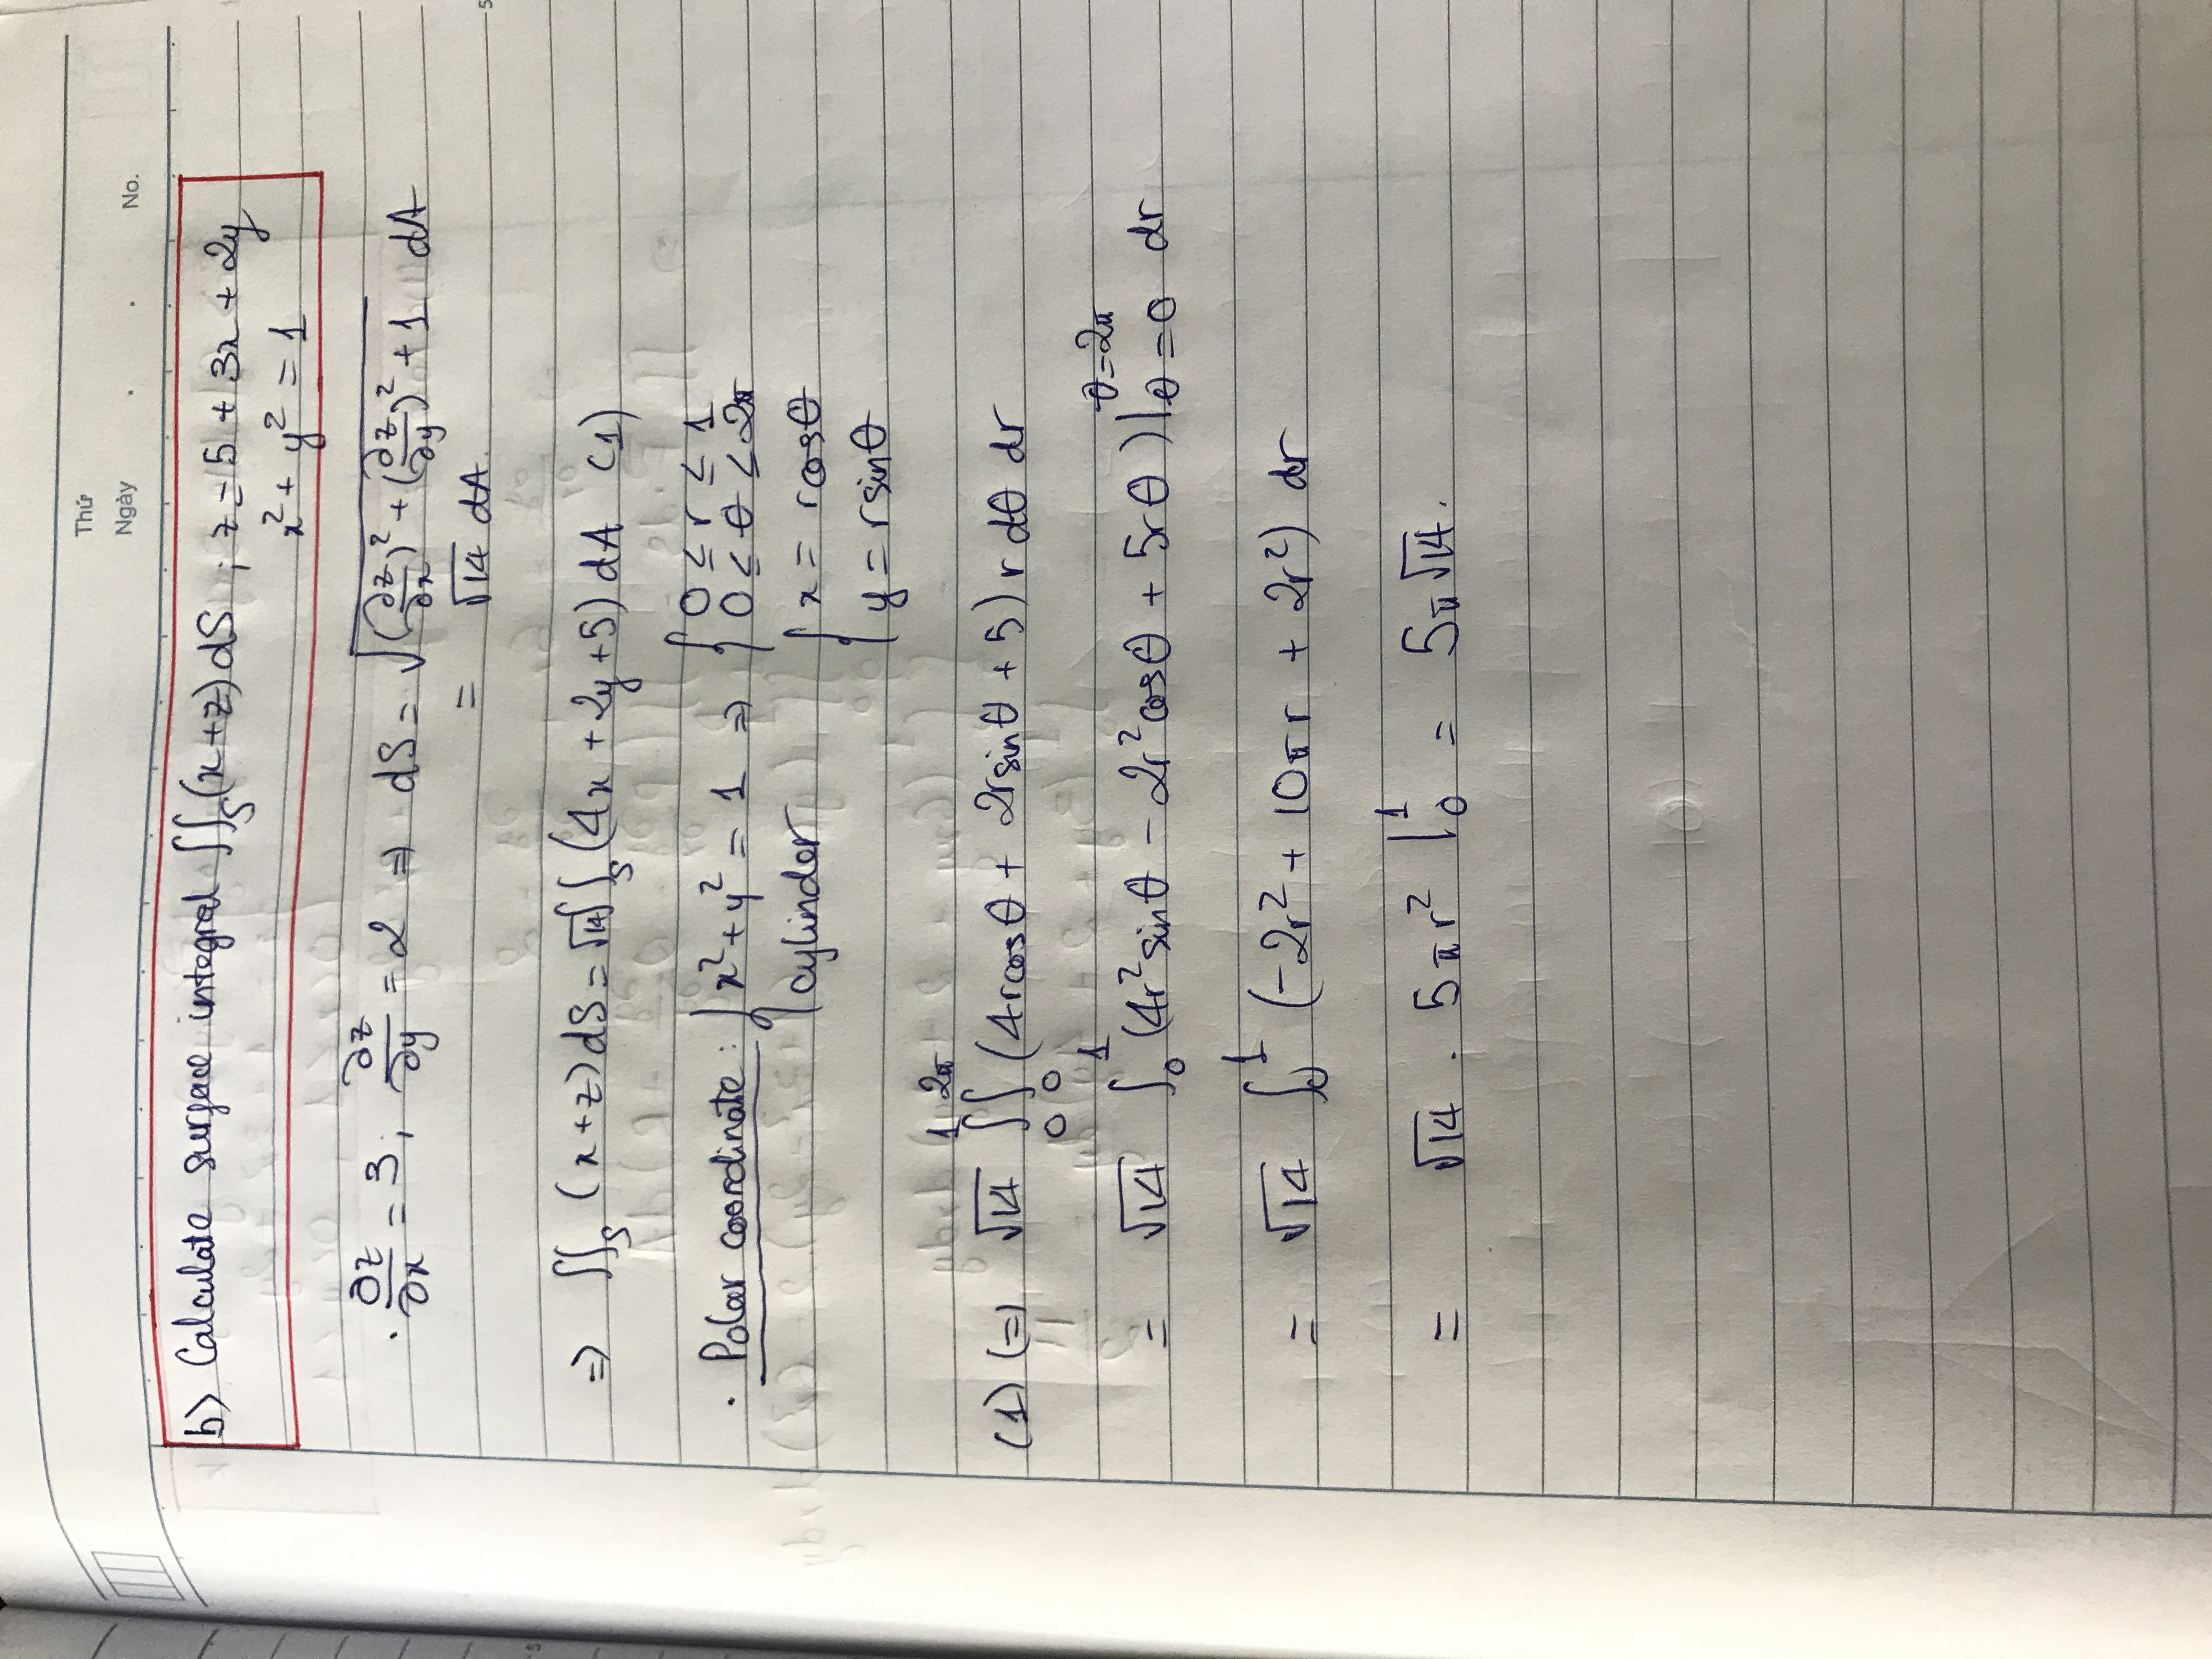 Thứ
Ngày . . No.
b) Calculate surface integral ∬_S (x+z) dS ; z = 5 + 3x + 2y
x² + y² = 1
· ∂z/∂x = 3; ∂z/∂y = 2 ⇒ dS = √((∂z/∂x)² + (∂z/∂y)² + 1) dA
= √14 dA.
5
⇒ ∬_S (x+z) dS = √14 ∬_S (4x + 2y + 5) dA (1)
· Polar coordinate : { x² + y² = 1 ⇒ { 0 ≤ r ≤ 1
0 ≤ θ ≤ 2π
cylinder { x = r cosθ
y = r sinθ
(1) (=) √14 ∫₀¹ ∫₀^2π (4r cosθ + 2r sinθ + 5) r dθ dr
= √14 ∫₀¹ (4r² sinθ − 2r² cosθ + 5rθ) |_θ=0^θ=2π dr
= √14 ∫₀¹ (−2r² + 10πr + 2r²) dr
= √14 . 5πr² |₀¹ = 5π√14.